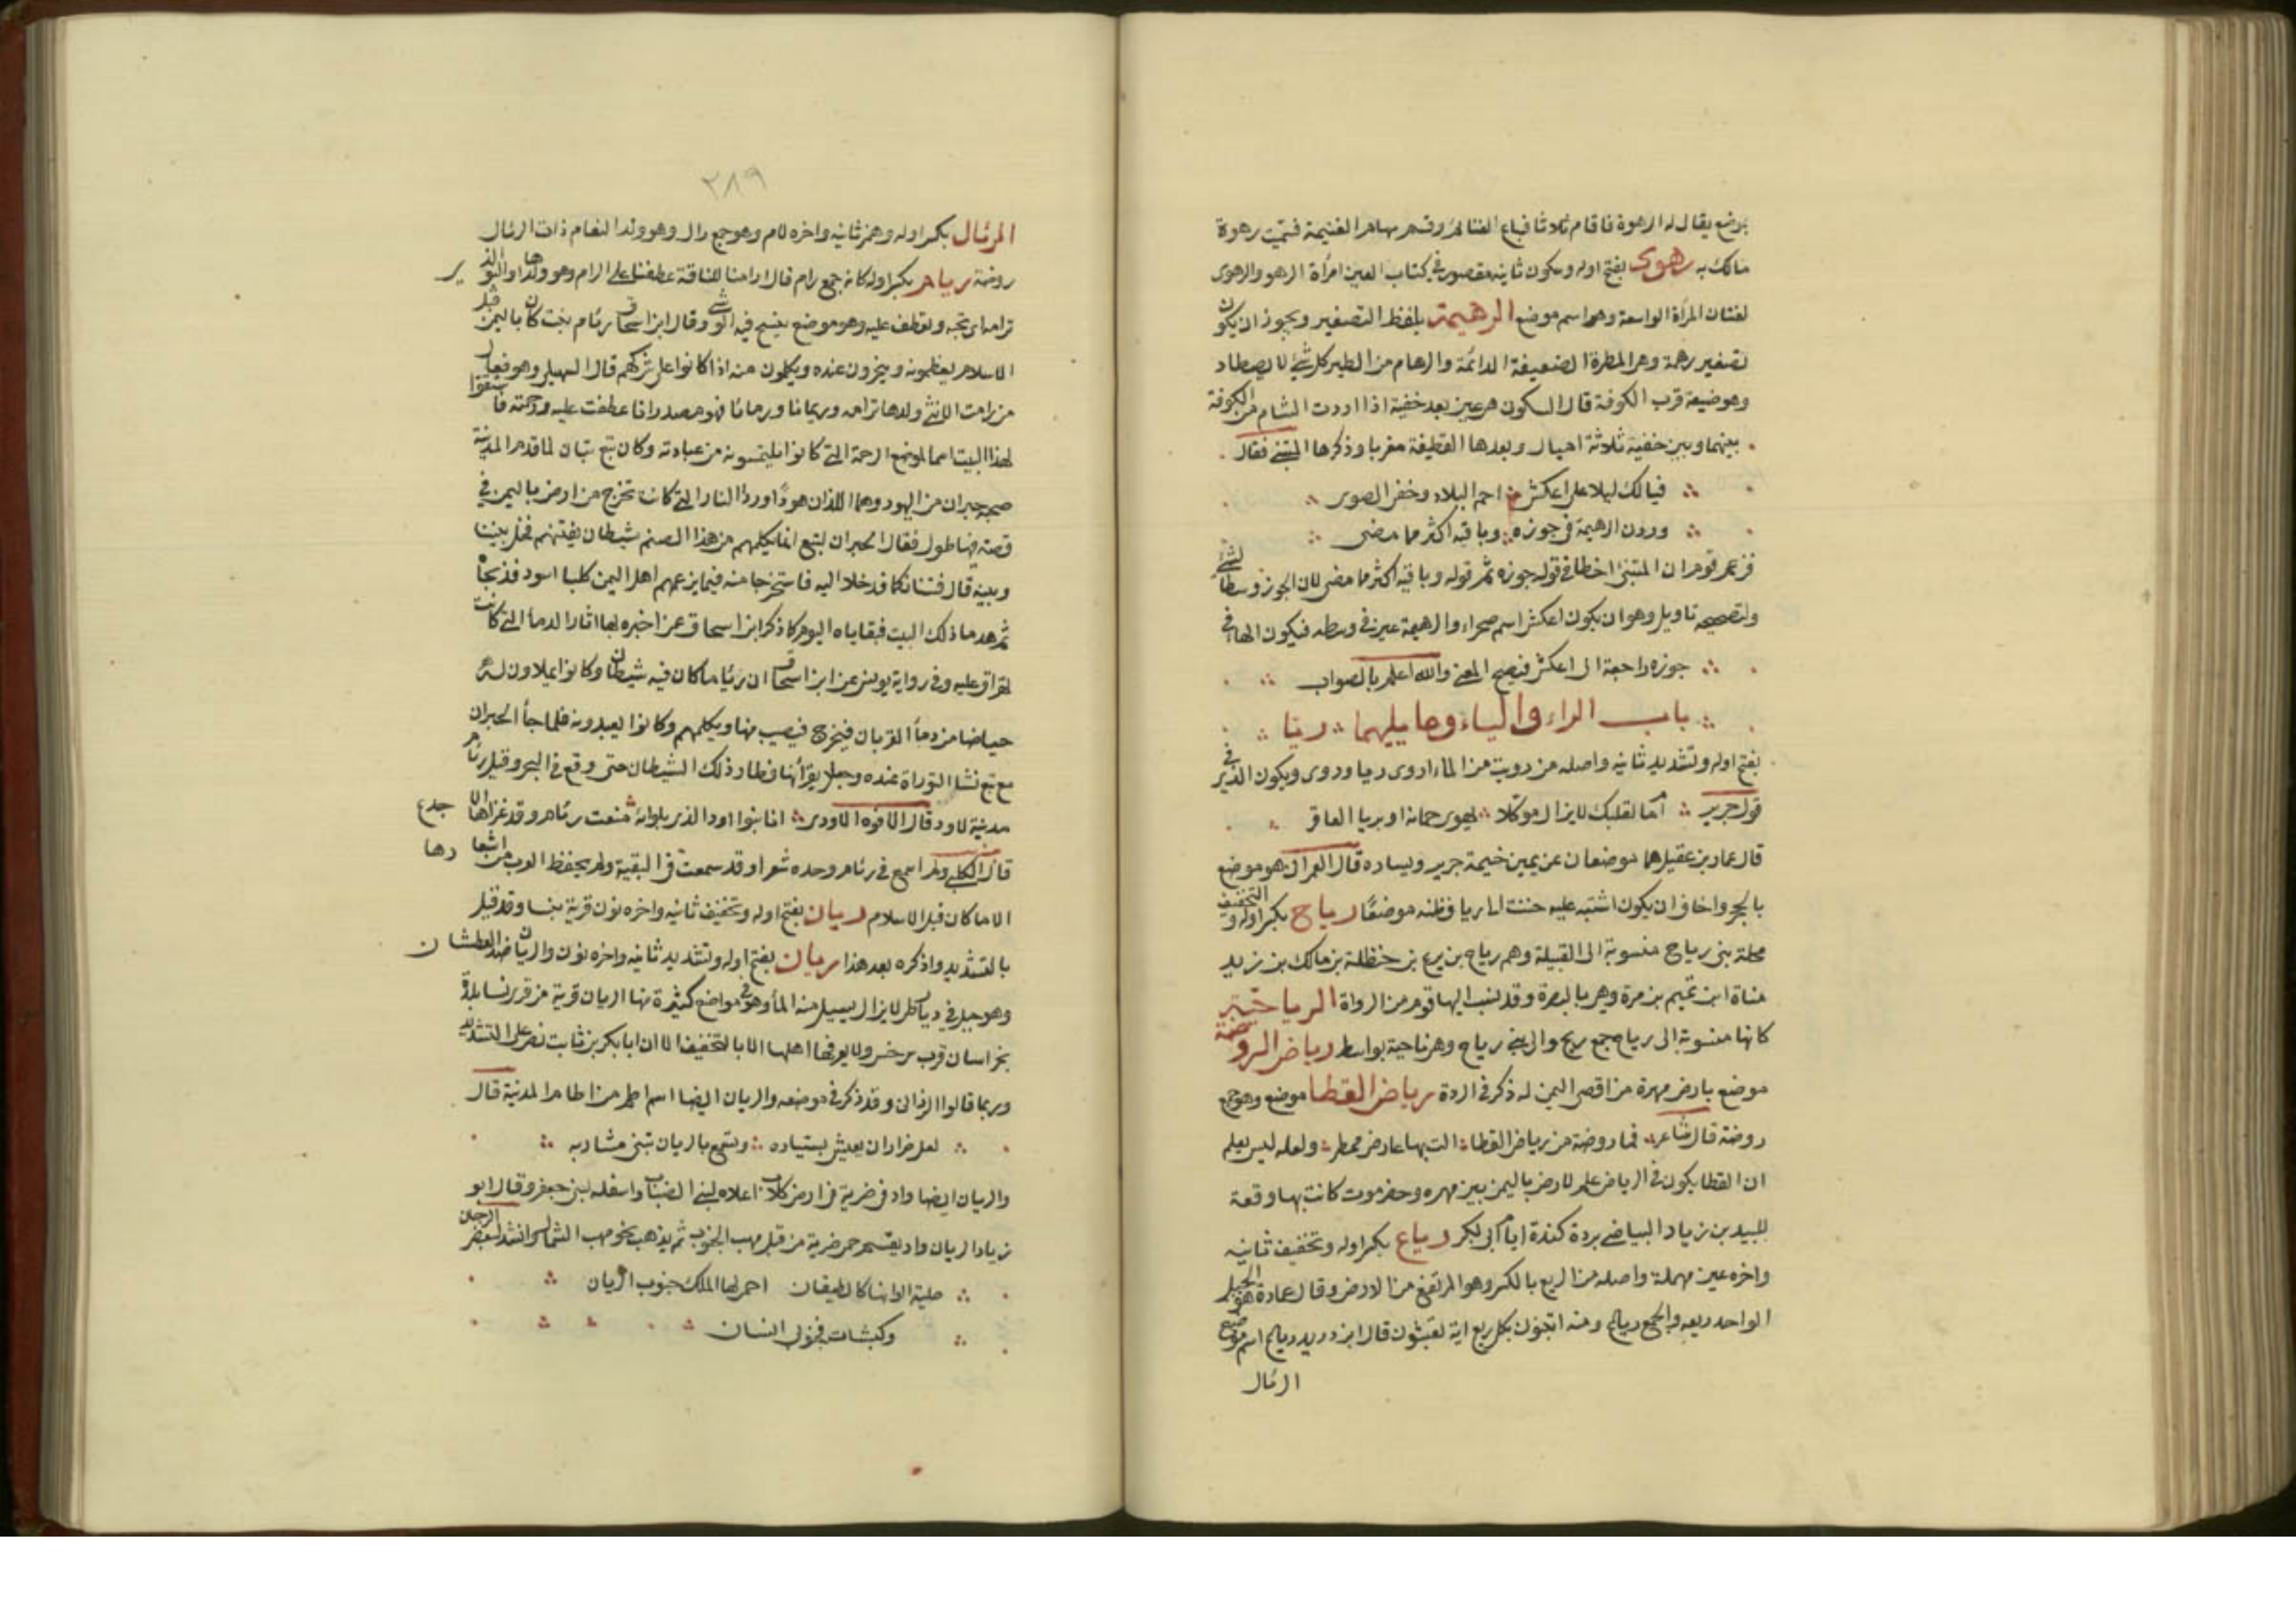 بموضع يقال له الرهوة فاقام ثلاثا فباع الغنائم وقسم سهام الغنيمة فسميت رهوة
مالك به رهوى بفتح اوله وسكون ثانيه مقصور في كتاب العين امرأة الرهو والرهوى
لغتان المرأة الواسعة وهو اسم موضع الرهيمة بلفظ التصغير ويجوز ان يكون
تصغير رهمة وهي المطرة الضعيفة الدائمة والرهام من الطير كل شئ لا يصطاد
وهو ضيعة قرب الكوفة قال السكون هي عين بعد خفية اذا اردت الشام من الكوفة
بينها وبين خفية ثلاثة اميال وبعدها القطيفة مغربا وذكرها المتنبي فقال
فيا لك ليلا على اعكش احم البلاد وخفى الصوى
وردن الرهيمة في جوزه وباقيه اكثر مما مضى
فزعم قوم ان المتنبي اخطا في قوله جوزه ثم قوله وباقيه اكثر مما مضى لان الجوز وسط الشئ
ولتصحيحه تاويل وهو ان يكون اعكش اسم صحراء والرهيمة عين في وسطه فيكون الهاء في
جوزه راجعة الى اعكش فيصح المعنى والله اعلم بالصواب
باب الراء والياء وما يليهما ريا
بفتح اوله وتشديد ثانيه واصله من رويت من الماء اروى ريا وروى ويكون الذي في
قول جرير اما لقلبك لا يزال موكلا لهوى جمانة او بريا العاقر
قال عمارة بن عقيل هما موضعان عن يمين خيمة جرير ويساره قال العمراني هو موضع
بالحجر واخاف ان يكون اشتبه عليه حننت الى ريا فظنه موضعا رياح بكسر اوله والتخفيف
محلة بني رياح منسوبة الى القبيلة وهم رياح بن يربوع بن حنظلة بن مالك بن زيد
مناة ابن تميم بن مرة وهي بالبصرة وقد نسب اليها قوم من الرواة الرياحية
كانها منسوبة الى رياح جمع ريح والى بني رياح وهي ناحية بواسط رياض الروضة
موضع بارض مهرة من اقصى اليمن له ذكر في الردة رياض القطا موضع وهو جمع
روضة قال شاعر فما روضة من رياض القطا الت بها عارض ممطر ولعله ليس بعلم
ان القطا يكون في الرياض علم لارض باليمن بين مهره وحضرموت كانت بها وقعة
للبيد بن زياد البياضي بردة كندة ايام ابي بكر رياع بكسر اوله وتخفيف ثانيه
واخره عين مهملة واصله من الريع بالكسر وهو المرتفع من الارض وقال عمارة هو الجبل
الواحد ريعه والجمع رياع ومنه اتبنون بكل ريع اية تعبثون قال ابن دريد رياع اسم موضع
الرئال
٢٨٩
الرئال بكسر اوله وهمز ثانيه واخره لام وهو جمع رال وهو ولد النعام ذات الرئال
روضة ريام بكسر اوله كانه جمع رام قال ارامنا للناقة عطفنا على الرام وهو ولدها او البو الذ ير
ترامه اي تحبه وتعطف عليه وهو موضع ينسج فيه الوشي وقال ابن اسحاق رئام بيت كان باليمن قبل
الاسلام يعظمونه وينحرون عنده ويكلمون منه اذا كانوا على شركهم قال السهيلي وهو فعال
من رامت الانثى ولدها ترامه وريمانا ورئاما فهو مصدر اذا عطفت عليه ورحمته فاشتقوا
لهذا البيت اسما لموضع الرحمة التي كانوا يلتمسونه من عبادته وكان تبع تبان لما قدم المدينة
صحبه حبران من اليهود وهما اللذان هودا وردا النار التي كانت تخرج من ارض باليمن في
قصة فيها طول فقال الحبران لتبع انما يكلمهم من هذا الصنم شيطان يفتنهم فخل بيننا
وبينه قال فشانكما فدخلا اليه فاستخرجا منه فيما يزعم اهل اليمن كلبا اسود فذبحاه
ثم هدما ذلك البيت فبقاياه اليوم كما ذكر ابن اسحاق عن اخبره لها اثار الدماء التي كانت
تهراق عليه وفي رواية يونس عن ابن اسحاق ان رئاما كان فيه شيطان وكانوا يملاون له
حياضا من دماء القربان فيخرج فيصيب منها ويكلمهم وكانوا يعبدونه فلما جاء الحبران
مع تبع نشرا التوراة عنده وجعلا يقرأنها فطار ذلك الشيطان حتى وقع في البحر وقيل رئام
مدينة لاود قال الافوه الاودي انا بنوا اود الذي بلوائه منعت رئام وقد غزاها الا جدع
قال الكلبي ولم اسمع في رئام وحده شعرا وقد سمعت في البقية ولم يحفظ العرب من اشعا رها
الا ما كان قبل الاسلام ريان بفتح اوله وتخفيف ثانيه واخره نون قرية بنسا وقد قيل
بالتشديد واذكره بعد هذا ريان بفتح اوله وتشديد ثانيه واخره نون والريان ضد العطشان
وهو جبل في ديار طي لا يزال يسيل منه الماء وهو في مواضع كثيرة منها الريان قرية من قرى نسا بلدة
بخراسان قرب سرخس ولا يعرفها اهلها الا بالتخفيف الا ان ابا بكر بن ثابت نص على التشديد
وربما قالوا الرذان وقد ذكر في موضعه والريان ايضا اسم اطم من اطام المدينة قال
لعل ضرارا ان يعيش بستياره وتسمع بالريان تبنى مشاربه
والريان ايضا واد في ضرية في ارض كلاب اعلاه لبني الضباب واسفله لبني جعفر وقال ابو
زياد الريان واد يقسم حمى ضرية من قبل مهب الجنوب ثم يذهب نحو مهب الشمال وانشد لبعض الرجاز
خلية ابوابها كالطيقان احمى لها الملك جنوب الريان
وكبشات فجنوبي انسان